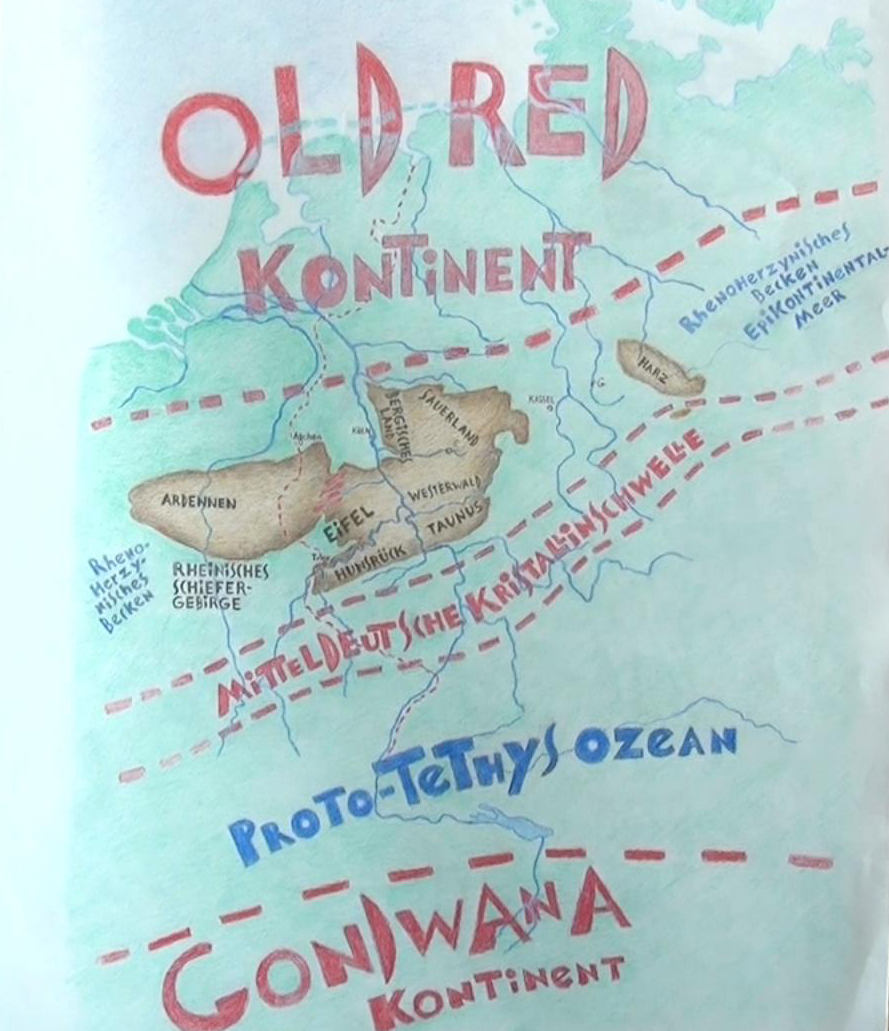 OLD RED
KONTINENT
RHENOHERZYNISCHES
BECKEN
EPIKONTINENTAL-
MEER
HARZ
G
KASSEL
SAUERLAND
BERGISCHES
LAND
KÖLN
Aachen
ARDENNEN
WESTERWALD
EIFEL
TAUNUS
HUNSRÜCK
RHENO-
HERZY-
NISCHES
BECKEN
RHEINISCHES
SCHIEFER-
GEBIRGE
MITTELDEUTSCHE KRISTALLINSCHWELLE
PROTO-TETHYS OZEAN
GONDWANA
KONTINENT